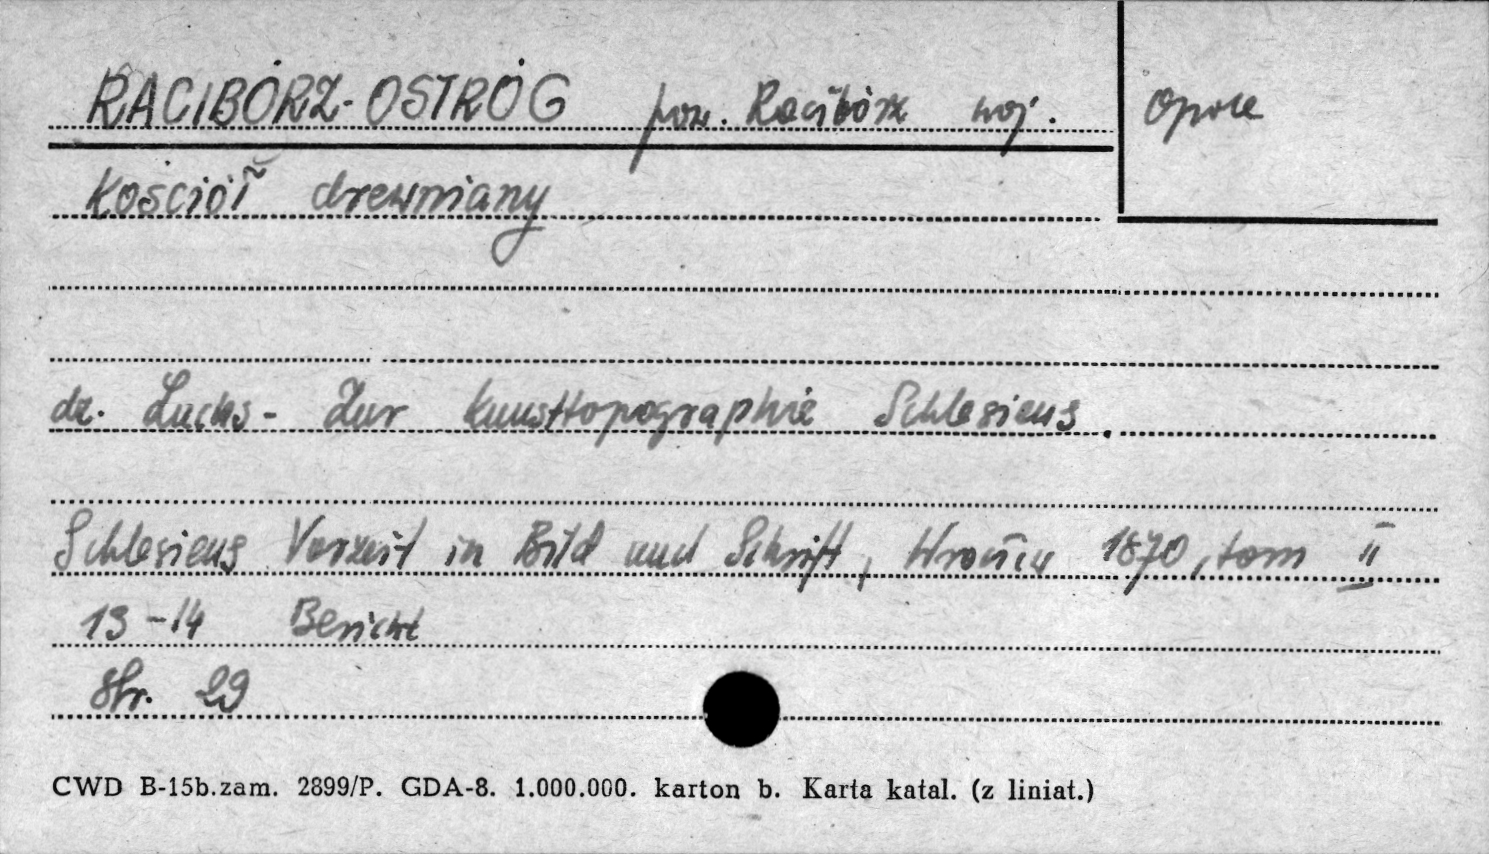 RACIBÓRZ-OSTRÓG pow. Racibórz woj. Opole
Kościół drewniany
dr. Luchs - Zur Kunsttopographie Schlesiens.
Schlesiens Vorzeit in Bild und Schrift, Wrocław 1870, tom II
13-14 Bericht
Str. 29
CWD B-15b.zam. 2899/P. GDA-8. 1.000.000. karton b. Karta katal. (z liniat.)